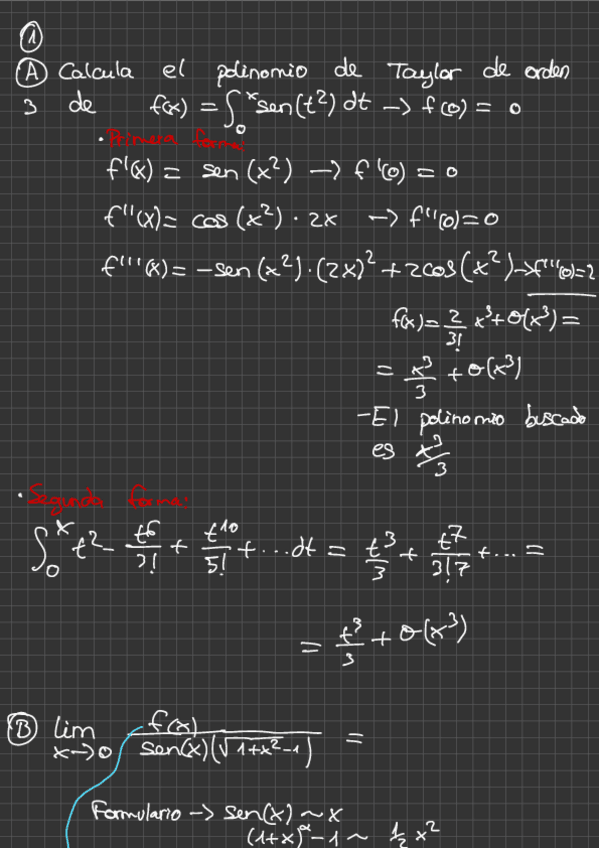 ①
Ⓐ Calcula el polinomio de Taylor de orden
3 de f(x) = ∫₀ˣ sen(t²) dt → f(0) = 0
· Primera forma:
f'(x) = sen(x²) → f'(0) = 0
f''(x) = cos(x²) · 2x → f''(0) = 0
f'''(x) = -sen(x²)·(2x)² + 2cos(x²) → f'''(0) = 2
f(x) = 2/3! x³ + O(x³) =
= x³/3 + O(x³)
- El polinomio buscado
es x³/3
· Segunda forma:
∫₀ˣ t² - t⁶/3! + t¹⁰/5! + ... dt = t³/3 + t⁷/3!7 + ... =
= t³/3 + O(x³)
Ⓑ lim x→0 f(x)/sen(x)(√1+x² -1) =
Formulario → sen(x) ~ x
(1+x)^α - 1 ~ 1/2 x²